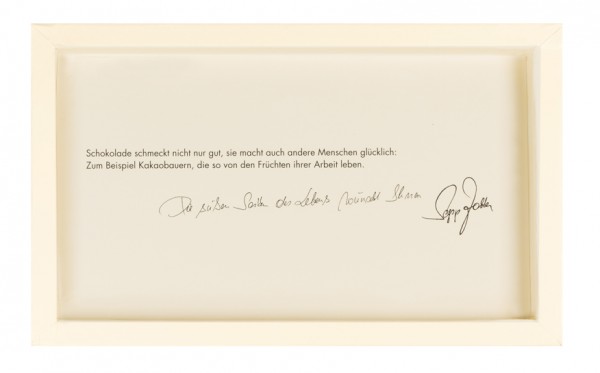 Schokolade schmeckt nicht nur gut, sie macht auch andere Menschen glücklich:
Zum Beispiel Kakaobauern, die so von den Früchten ihrer Arbeit leben.
Die süßen Seiten des Lebens wünscht Ihnen